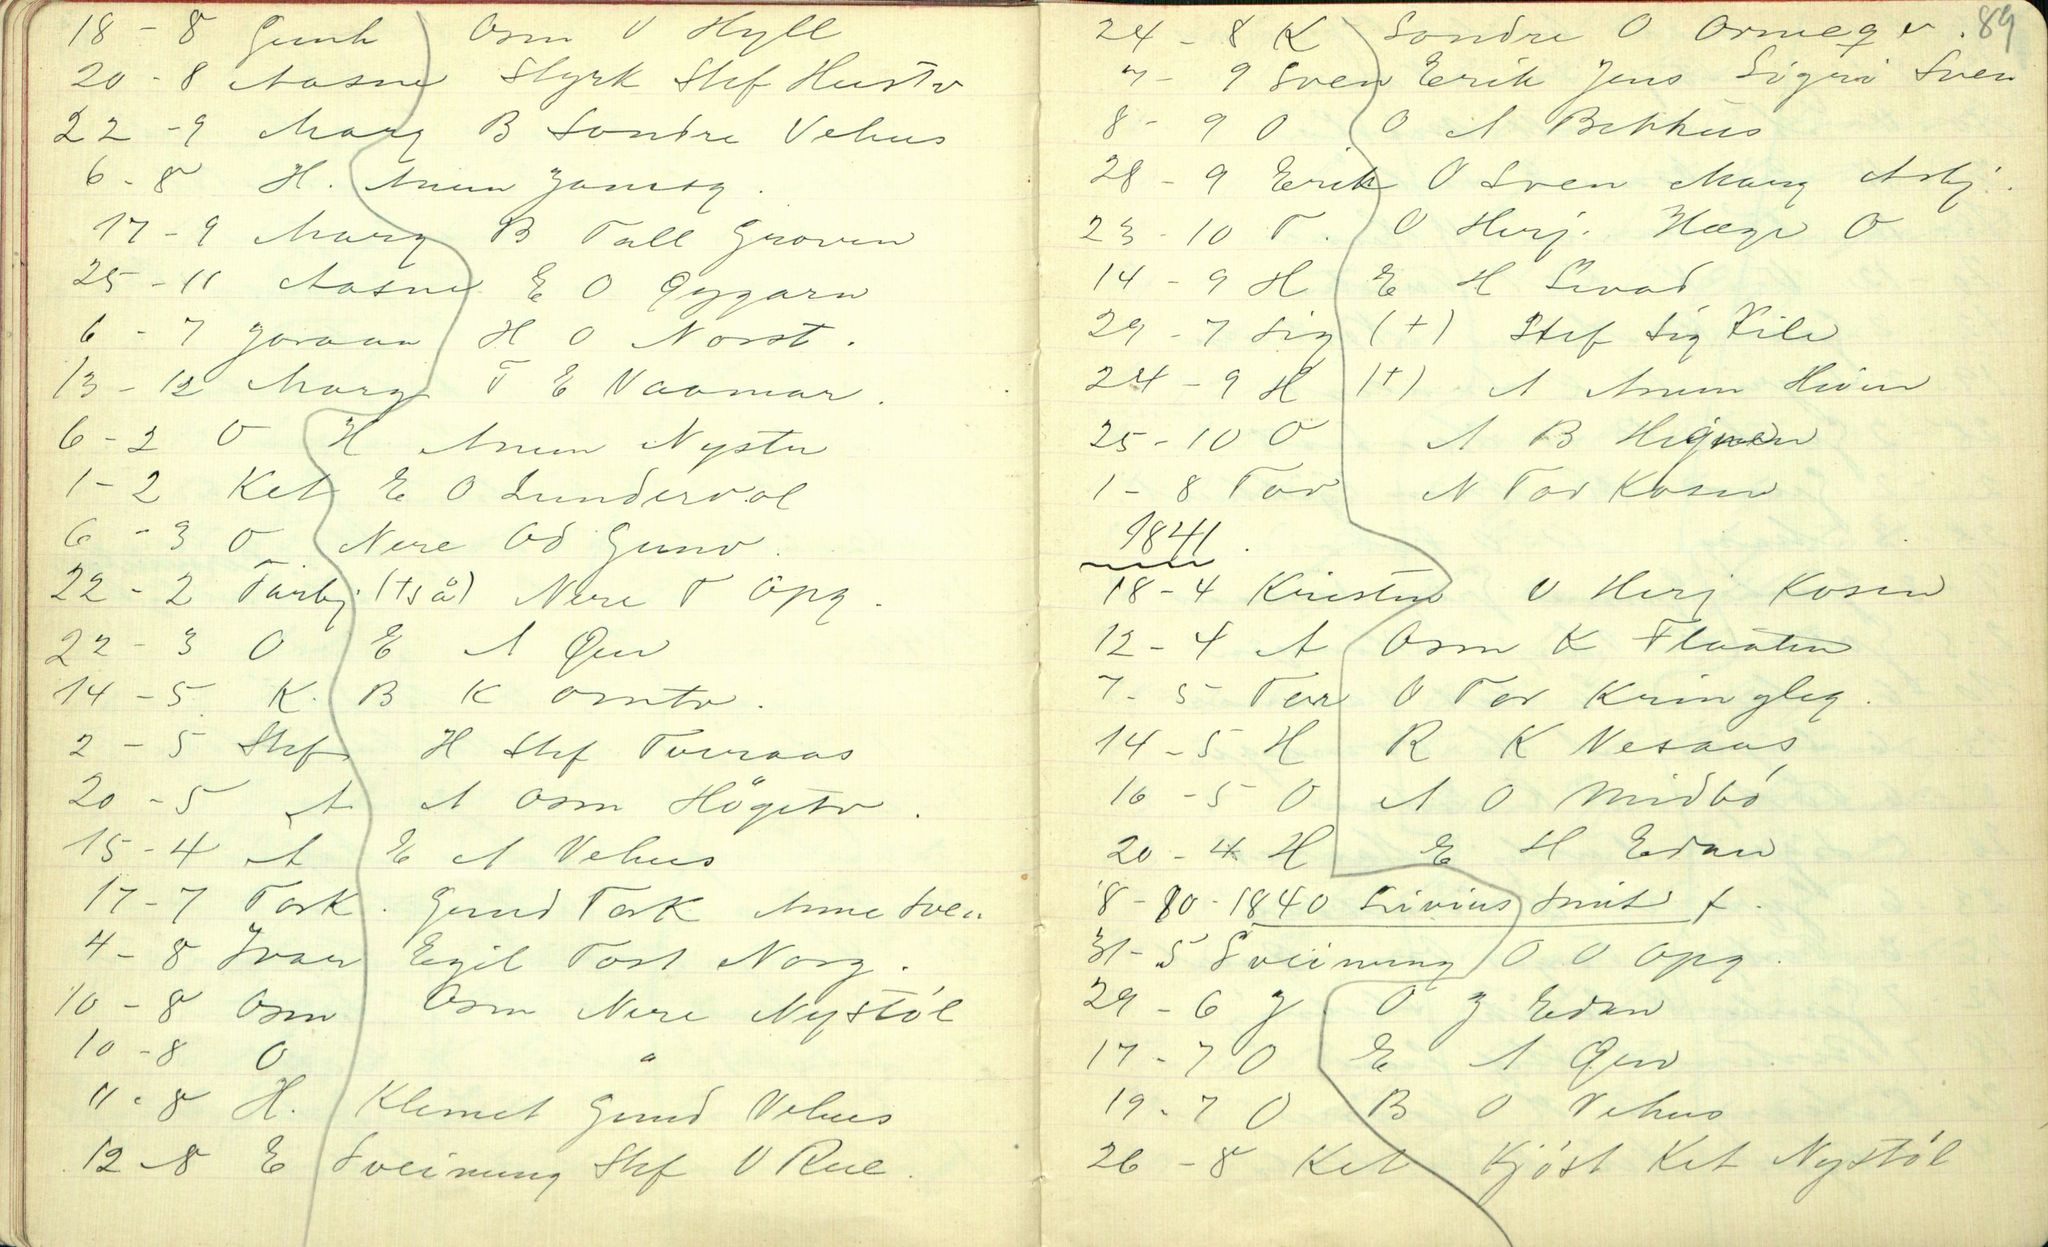 18 - 8 Gunh Osm O Hyll
20 - 8 Aasne Styrk Stef Hustv
22 - 9 Marg B Sondre Vehus
6 - 8 H. Anun
17 - 9 Marg B Tall Groven
25 - 11 Aasne E O Gygarn
6 - 7 Joraan H O Norst.
13 - 12 Marg T E Vaamar.
6 - 2 O H Anun Nystu
1 - 2 Ket E O Lunderval
6 - 3 O Nere Od Gunv.
22 - 2 Turbj. (+så) Nere T Opg.
22 - 3 O E A Qvv
14 - 5 K. B K Omtv.
2 - 5 Stef H Stef Tveraas
20 - 5 A A Osm Högetv.
15 - 4 A E A Vehus
17 - 7 Tork. Gund Tork Anne Sven
4 - 8 Ivar Egil Tost Norg.
10 - 8 Osm Osm Nere Nystöl
10 - 8 O "
11 - 8 H. Klemet Gund Vehus
12 - 8 E Sveinung Stef O Rue.
89
24 - 8 K Sondre O Ormegv.
7 - 9 Sven Erik Jens Sigri Sven
8 - 9 O O A Bekhus
28 - 9 Erik O Sven Marg Asbj.
23 - 10 T. O Herj. Hæge O
14 - 9 H E H
29 - 7 Sig (+) Stef Sig Kile
24 - 9 H (+) A Anun
25 - 10 O A B
1 - 8 Tor N Tor Kosin
1841.
18 - 4 Kirsten O Herj Kosin
12 - 4 A Osm K Flaaten
7 - 5 Tor O Tor Kringleg.
14 - 5 H R K Nesaas
16 - 5 O A O Midbö
20 - 4 H E H Edan
8 - 10 - 1840 Livius Smit f.
31 - 5 Sveinung O O Opg.
29 - 6 J O J Edan
17 - 7 O E A Qvv
19 - 7 O B O Vehus
26 - 8 Ket Kjöst Ket Nystöl